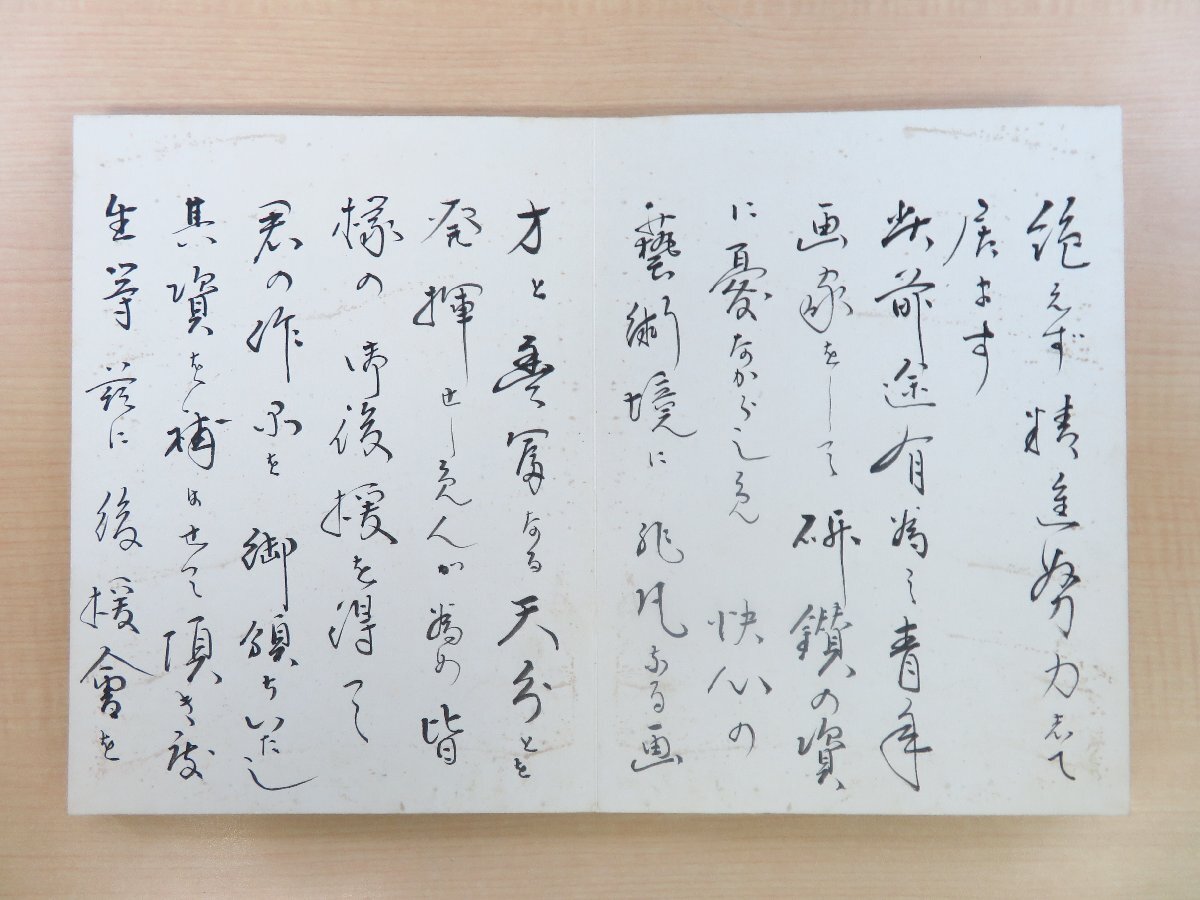 絶えず精進努力して
居ます
此前途有為之青年
画家をして研鑽の資
に憂なからしめ 快心の
藝術境に非凡なる画
才と豊富なる天分とを
発揮せしめんが為め皆
様の御後援を得て
君の作品を御頒ちいたし
其資を補はせて頂き度
生等茲に後援會を